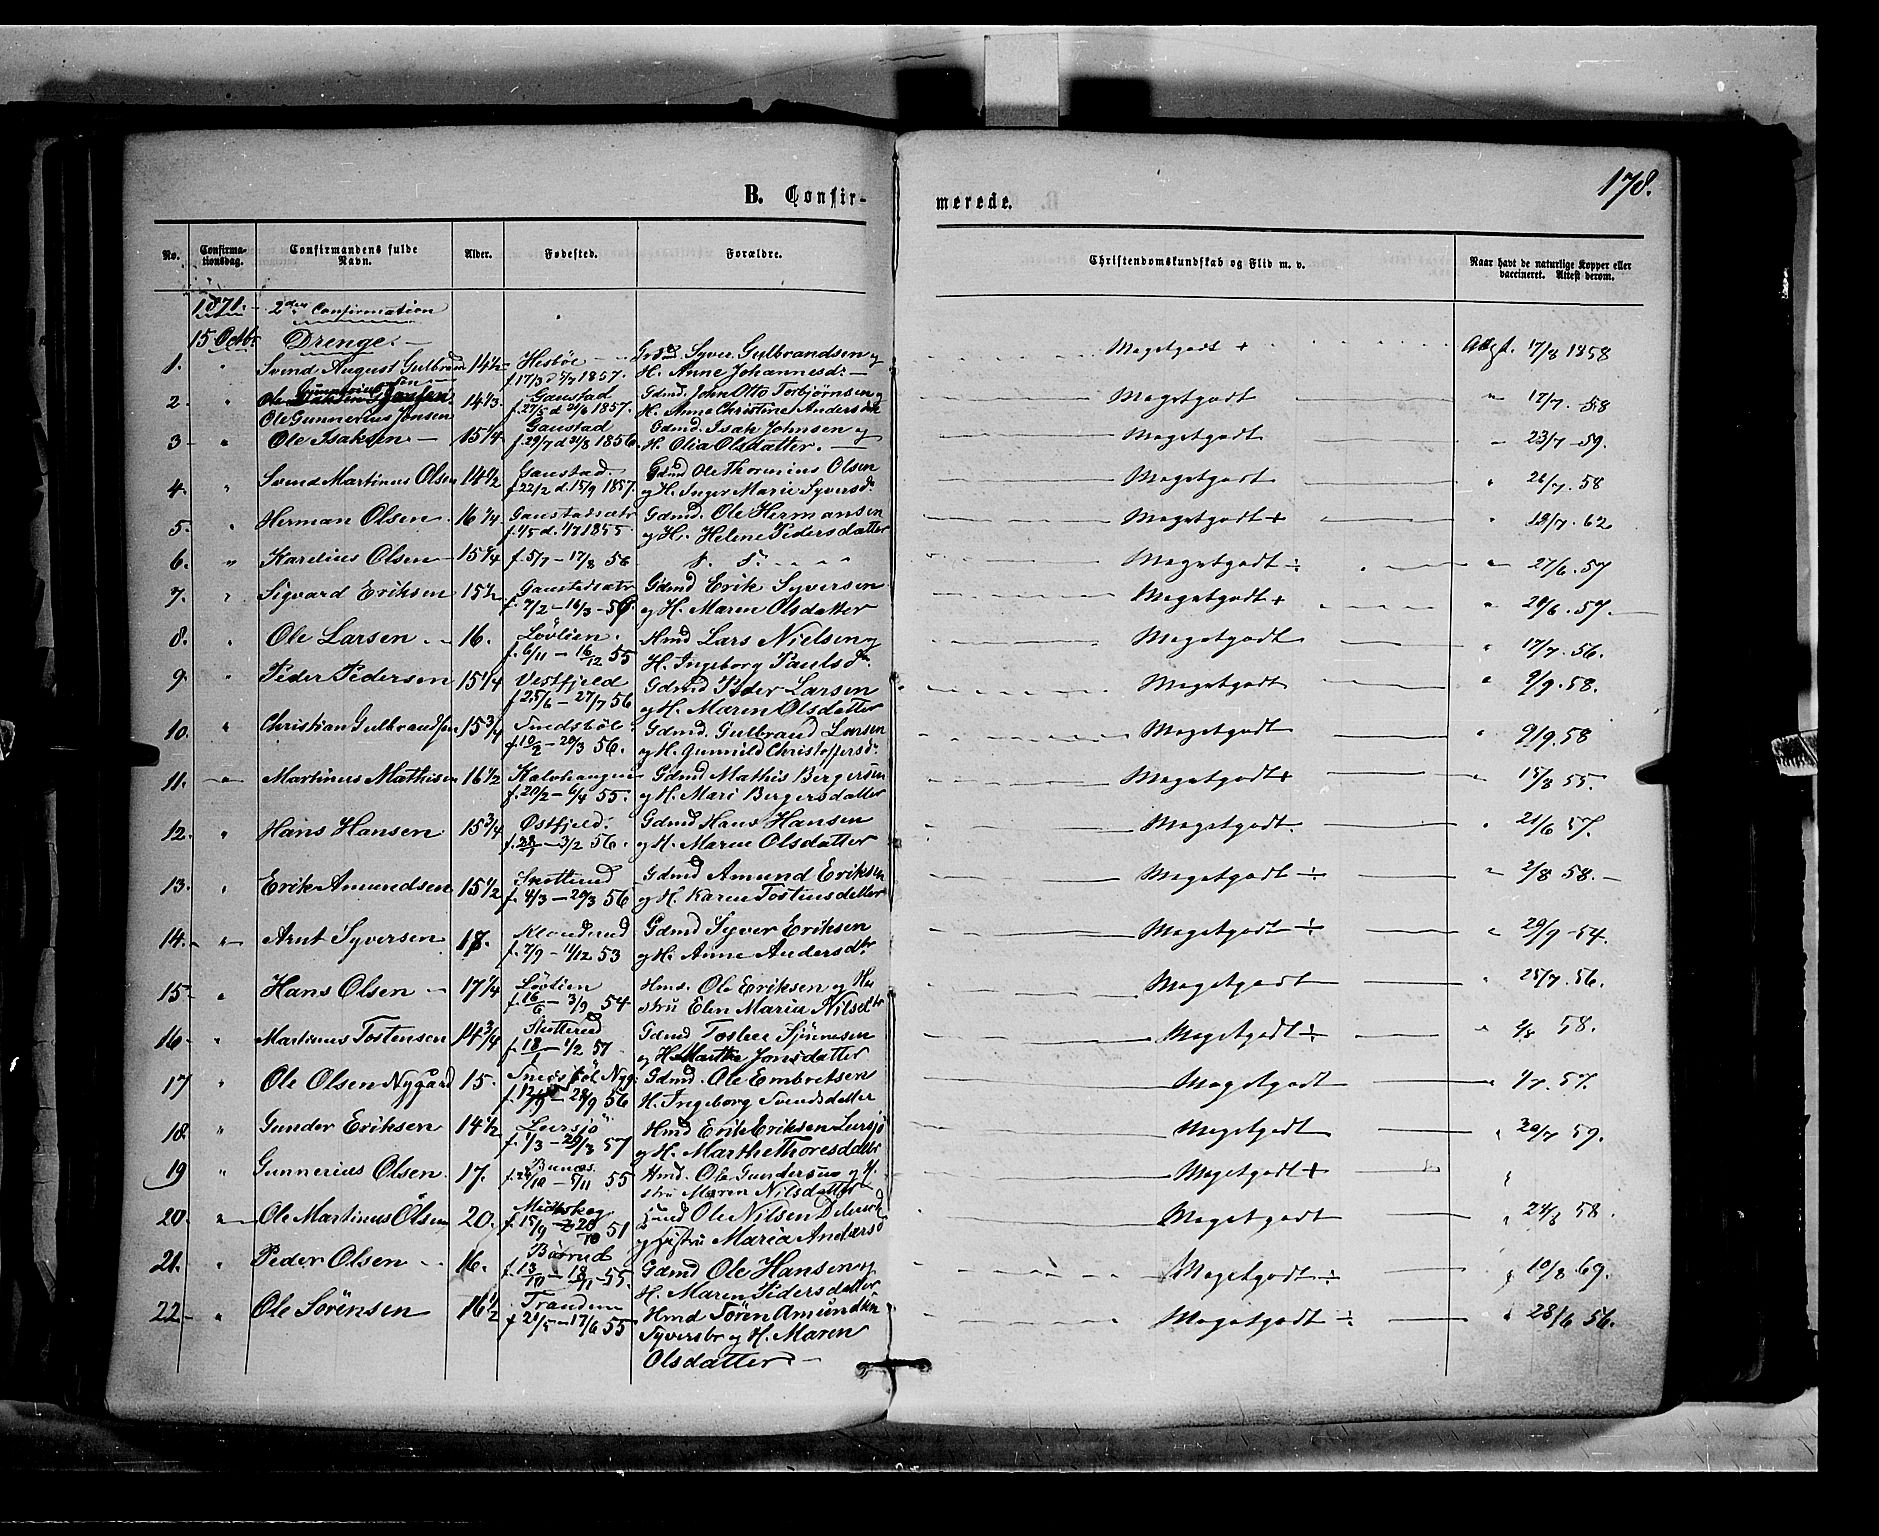 178.
B. Confir-
merede.
No.
Confirma-
tionsdag.
Confirmandens fulde
Navn.
Alder.
Fødested.
Forældre.
Christendomskundskab og Flid m. v.
Naar havt de naturlige Kopper eller
vaccineret. Attest derom.
1871. 2den Confirmation
15 Octb. Drenge.
1. " Svend August Gulbrand 14½ Hesböe Gdmd. Syver Gulbrandsen og Megetgodt + Attst. 17/8 1858
sen f. 17/3 1857. H. Anne Johannesd:
2. " 14⅓ Gaustad Gdmd. John Otto Torbjørnsen og Megetgodt " 17/7 58
Ole Gunnerius Jonsen f. 27/5 d 21/6 1857. H. Anne Christine Andersdtr
3 " Ole Isaksen 15¼ Gaustad Gdmd. Isak Johnsen og Megetgodt " 23/7 59.
f. 29/7 d 31/8 1856. H. Olia Olsdatter.
4. " Svend Martinus Olsen 14½ Gaustad. Gdmd Ole Thorinius Olsen Megetgodt " 26/7. 58
f. 22/2 d. 15/9 1857. og H. Inger Marie Syversd:
5. " Herman Olsen 16¼ Gaustadsætr Gdmd. Ole Hermansen Megetgodt + " 19/7. 62
f. 1/5 d. 1/7 1855. og H. Helene Pedersdatter
6. " Karelius Olsen 15¼ f. 5/7 – 17/8 56 Megetgodt ÷ " 27/6. 57
7. " Sigvard Eriksen 15½ Gaustadsætr Gdmd Erik Syversen Megetgodt + " 20/6. 57.
f. 7/2 – 16/3 – 56. og H. Maren Olsdatter
8. " Ole Larsen 16. Løvlien. Hmd Lars Nielsen og Megetgodt " 17/7. 56.
f. 6/11 – 16/12 55 H. Ingeborg Paulsd:
9. " Peder Pedersen 15¼ Vestfjeld Gdmd Peder Larsen Megetgodt " 9/9. 58.
f. 25/6 – 27/7 56 og H. Maren Olsdatter
10. " Christian Gulbrandsen 15¾ Sundsböl Gdmd. Gulbrand Larsen Megetgodt " 9/9. 58
f. 10/2 – 20/3 56. og H. Gunnild Christoffersd:
11. " Martinus Mathisen 16½ Kalvhaugen Gdmd Mathis Bergersen Megetgodt + " 15/8 55.
f. 20/2 – 6/4 55. og H. Mari Bergersdatter
12. " Hans Hansen 15¾ Østfjeld. Gdmd Hans Hansen Megetgodt. " 21/6 57.
– 3/2 56. og H. Maren Olsdatter
13. " Erik Amundsen 15½ Gdmd Amund Eriksen Megetgodt ÷ " 2/8 58.
f. 4/3 – 20/3 56 og H. Karen Tostensdatter
14. " Arnt Syversen 17. Klanderud Gdmd Syver Eriksen Megetgodt ÷ " 29/9 54.
f. 7/9 – 11/12 53 og H. Anne Andersdtr
15 " Hans Olsen 17¼ Løvlien Hmd. Ole Eriksen og Hu Megetgodt " 25/7. 56.
f. 16/6 – 3/9 54 stru Elen Maria Nilsdtr
16 " Martinus Tostensen 14¾ Slotterud Gdmd Megetgodt ÷ " 58.
f. 18/1 – 1/2 57 og H. Marthe Jonsdatter
17 " Ole Olsen Nygård 15. Nyg. Gdmd. Ole Embretsen Megetgodt " 57.
– 28/9 56 H. Ingeborg Svendsdatter
18. " Gunder Eriksen 14½ Lersjö Hmd Erik Eriksen Lersjö Megetgodt " 20/7 59.
f. 1/3 – 29/3 57 og H. Marthe Thoresdatter
19 " Gunnerius Olsen 17. Bunæs Hmd. Ole Gundersen og H. Megetgodt +
f. 24/10 – 5/11 55 stru Maren Nilsdatter
20. " Ole Martinus Olsen 20. Midtskog Ole Nilsen Megetgodt " 24/8 58.
f. 15/9 – 20/10 51 og Hustru Maria Andersd
21. " Peder Olsen 16. Bårrud Gdmd Ole Hansen og Megetgodt ÷ 10/8 69.
f. 13/10 – 18/11 55. H. Maren Pedersdatter
22 " Ole Sörensen 16½ Trandum Hmd Sören Amundsen Megetgodt ÷ " 28/6 56.
f. 21/5 – 17/6 55 Syversbr og H. Maren
Olsdatter.